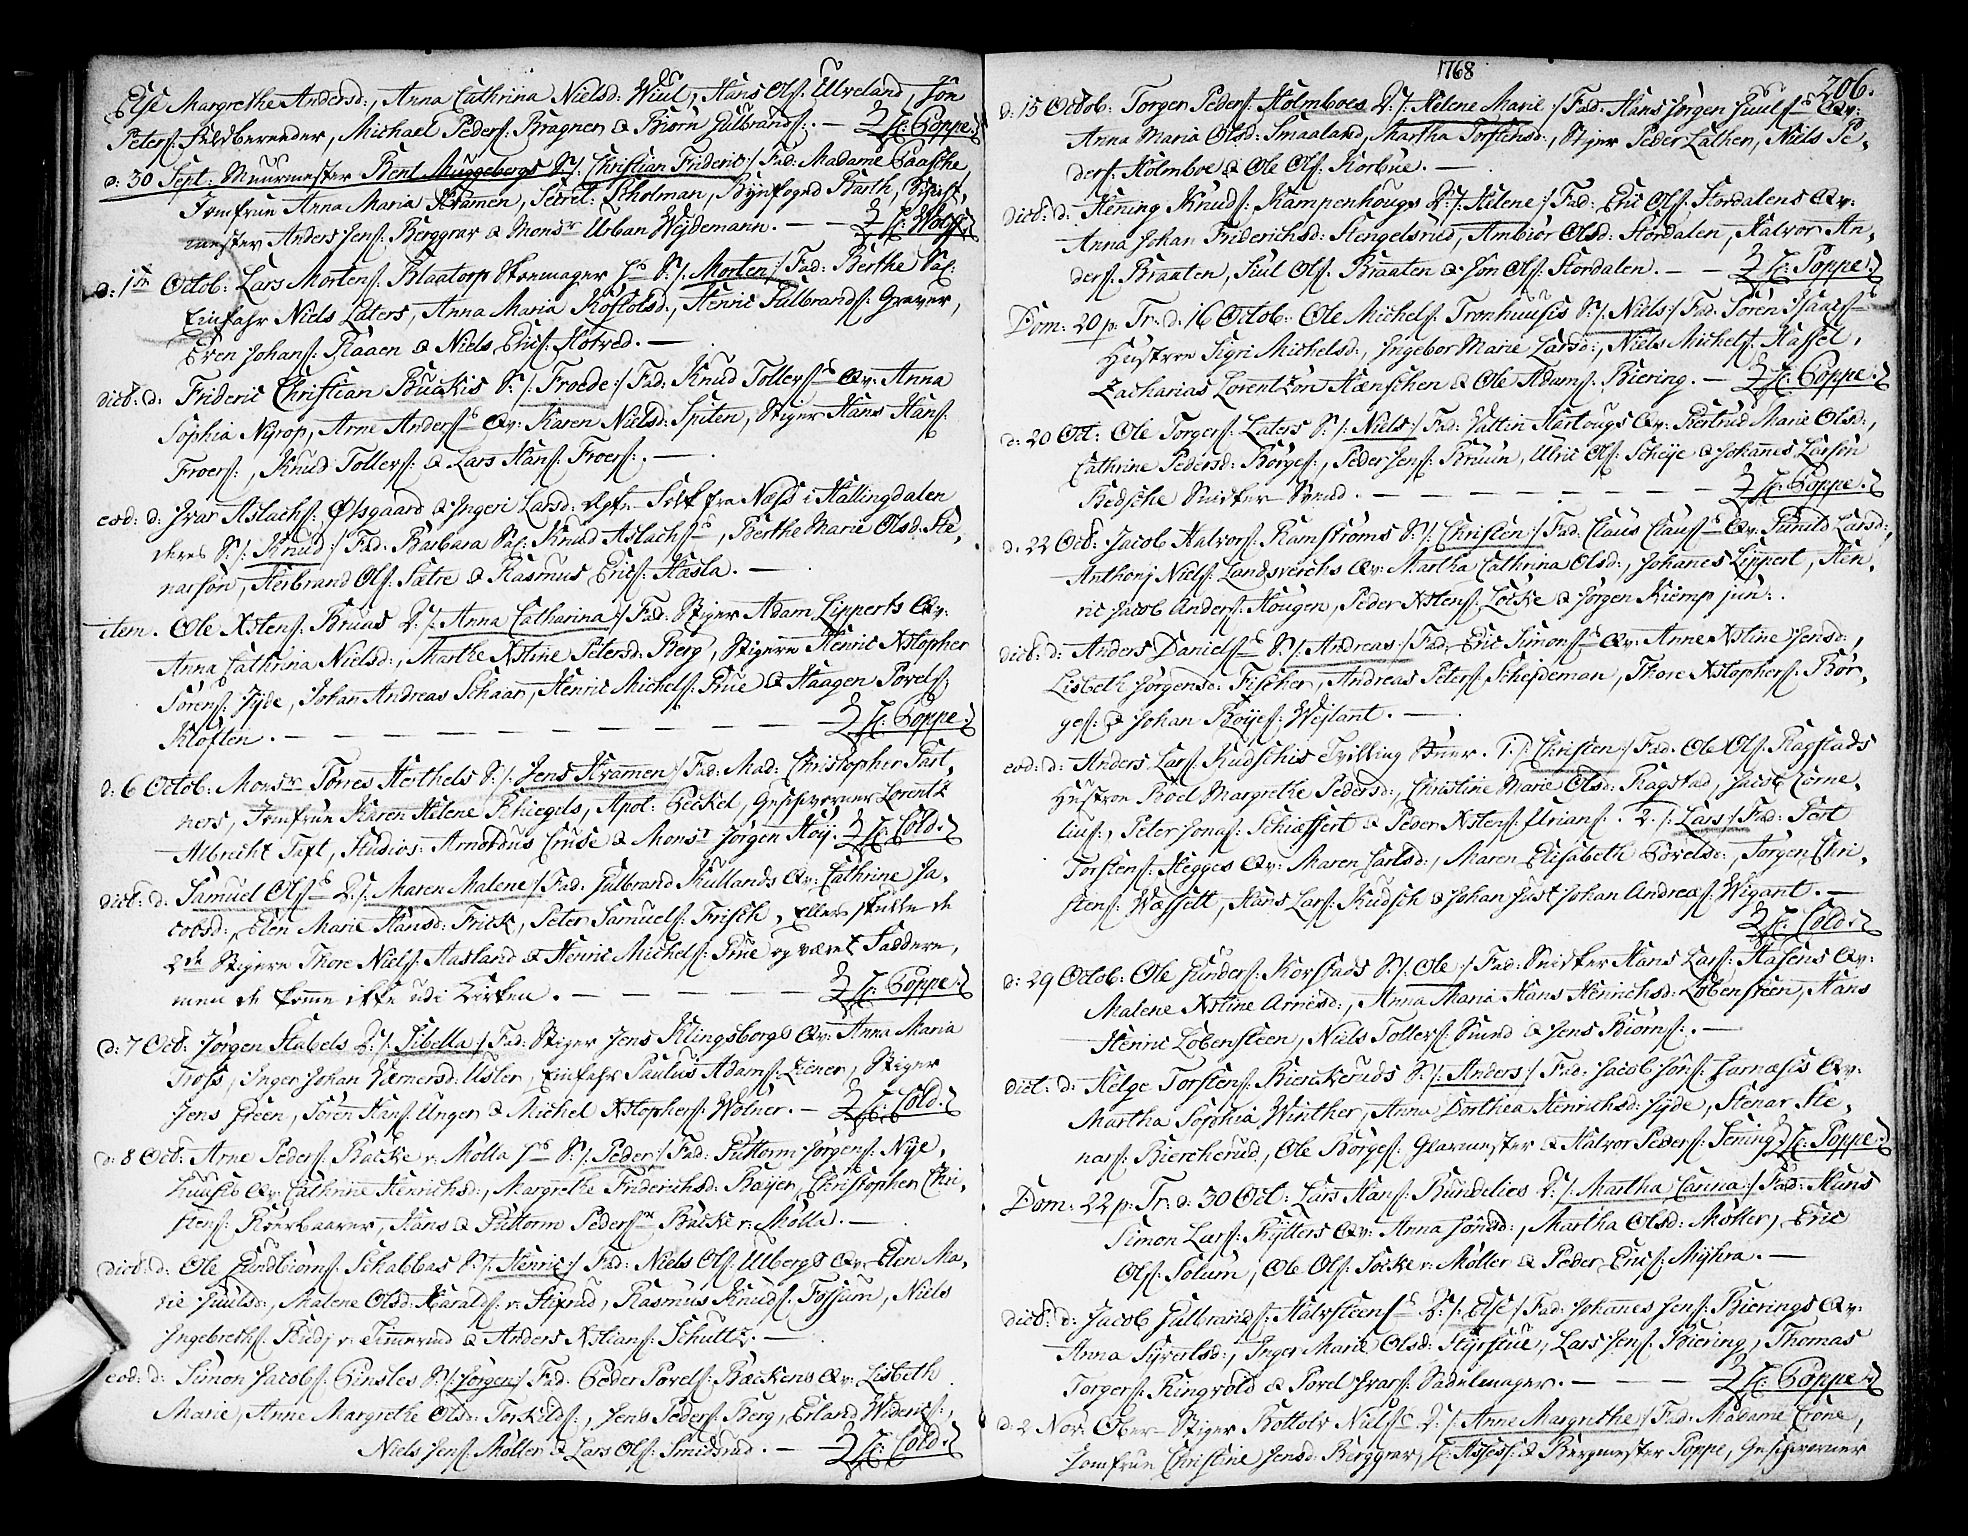 Else Margrethe Andersd:, Anna Cathrina Nielsd: Wiul, Hans Ols: Ulveland, Jon
Peters: Feldbereder, Michael Peders: Bragner & Biørn Gulbrands: . — H: Poppe
d: 30 Sept: Muurmester Bent Muggebergs S: /: Christian Frideric :/ Fad: Madame Paasche,
Jomfrue Anna Maria Kramer, Secret: Scholman, Bÿefoged Barth,
mester Anders Jens: Berggrav & Monsr Urban Weÿdemann. — H: Woyff
d: 1ste Octob: Lars Mortens: Blaatorp Skoemager S: /: Morten :/ Fad: Berthe Sal:
Einfahr Niels Laters, Anna Maria Kostolsd:, Henric Gulbrands: Graver,
Even Johans: Raaen & Niels Erics: Hotved. —
dict: d: Frideric Christian Buckis S: /: Froede :/ Fad: Knud Tollers Qv: Anna
Sophia Nÿrop, Arne Anders Qv: Karen Nielsd: Spiten, Stiger Hans Hans:
Froers:, Knud Tollers: & Lars Hans: Froers: . —
eod: d: Ivar Aslachs: Øhsgaard & Ingeri Larsd: Folk fra Næss i Hallingdalen
deres S: /: Knud :/ Fad: Barbara Sal: Knud Aslachs, Berthe Marie Olsd: Ste,
narsøn, Herbrand Ols: Sætre & Rasmus Erics: Hasla. —
item. Ole Xstens: Bruus D: /: Anna Catharina :/ Fad: Stiger Adam Lipperts Qv:
Anna Cathrina Nielsd:, Marthe Xstine Petersd: Berg, Stigern Henric Xstopher
Sørens: Jÿde, Johan Andreas Schaar, Henric Michels: Brue & Haagen Povels:
Kløften. — — — — — — — H: Poppe
d: 6 Octob: Monsr Torres Herthels S: /: Jens Kramer :/ Fad: Mad: Christopher Part,
ners, Jomfrue Karen Helene Schiegels, Apot: Peckel, Geschworner Lorentz
Albrecht Taft, Studios: Arnoldus Cruse & Monsr Jørgen Høÿ. H: Cold
dict: d: Samuel Ols: D: /: Maren Malene :/ Fad: Gulbrand Kullands Qv: Cathrine Ja,
cobsd:, Elen Marie Hansd: Frick, Peter Samuels: Frisch, Ellers skulde de
2de Stigern Thore Niels: Aasland & Henric Michels: Brue og været Faddere,
men de komme ikke udi Kirken. — — — H: Poppe
d: 7 Oct: Jørgen Stabels D: /: Sibella :/ Fad: Stiger Jens Klingsborgs Qv: Anna Maria
Tross, Inger Johan Værnersd: Usler, Einfahr Paulus Adams: Ziener, Stiger
Jens Green, Søren Hans: Unger & Michel Xstophers: Wølner. — H: Cold
d: 8 Oct: Arne Peders: Bække v: Mølla S: /: Peder :/ Fad: Guttorm Jørgens: Nÿe,
huusis Qv: Cathrine Henrichsd:, Margrethe Friderichsd: Baÿer, Christopher Chri,
stens: Røerbaarer, Hans & Guttorm Peders: Bække v: Mølla. —
dict: d: Ole Gundbiørns: Schabbas S: /: Henric :/ Fad: Niels Ols: Ulbergs Qv: Elen Ma,
rie Juulsd:, Malene Olsd: Haralds: v: Stifrud, Rasmus Knuds: Fossum, Niels
Ingebreths: Rudj v: Timerud & Anders Xstians: Schultz. —
eod: d: Simon Jacobs: Pinsles S: /: Jørgen :/ Fad: Peder Povels: Backens Qv: Lisbeth
Marie, Anne Margrethe Olsd: Torskilds:, Jens Peders: Berg, Erland Widerics:,
Niels Jens: Møller & Lars Ols: Smidsrud. — H: Cold
1768 206.
d: 15 Octob: Torger Peders: Holmboes D: /: Helene Marie :/ Fad: Hans Jørgen Juuls Qv:
Anna Maria Olsd: Smaaland, Martha Torstensd:, Stiger Peder Lathen, Niels Pe,
ders: Holmboe & Ole Ols: Korbøe. —
dict: d: Hening Knuds: Kampenhougs D: /: Helene :/ Fad: Eric Ols: Stordalens Qv:
Anna Johan Friderichsd: Hengelsrud, Ambiør Olsd: Stordalen, Halvor An,
ders: Braaten, Juul Ols: Braaten & Jon Ols: Stordalen. — H: Poppe
Dom: 20 p: Tr: d: 16 Octob: Ole Michels: Tronhuusis S: /: Niels :/ Fad: Søren Isaacs
Hustroe Sigri Michelsd:, Ingebor Marie Larsd:, Niels Michels: Kassel,
Zacharias Lorentzøn Hænschen & Ole Adams: Biering. — H: Poppe
d: 20 Oct: Ole Torgers: Laters S: /: Niels :/ Fad: Vattin Hartougs Qv: Giertrud Marie Olsd:,
Cathrine Pedersd: Børges:, Peder Jens: Bruun, Ulric Ols: Scheÿe & Johanes Larsøn
Bedsche Snidker Svend. — — — — — — H: Poppe
d: 22 Oct: Jacob Halvors: Ramstrøms S: /: Christen :/ Fad: Claus Claus Qv: Gunild Larsd:,
Anthonj Niels: Landsverchs Qv: Martha Cathrina Olsd:, Johanes Lippert, Hen,
ric Jacob Anders: Hougen, Peder Xstens: Løcke & Jørgen Kiemp jun: .
dict: d: Anders Daniels S: /: Andreas :/ Fad: Eric Simons Qv: Anne Xstine Jensd:,
Lisbeth Jørgensd: Fischer, Andreas Peters: Scheÿdeman, Thore Xstophers: Bør,
ges: & Johan Boÿes: Weÿlant. —
eod: d: Anders Lars: Kudschis Tvilling Sønner. 1: /: Christen :/ Fad: Ole Ols: Ragstads
Hustroe Boel Margrethe Pedersd:, Christine Marie Olsd: Ragstad, Jacob Corne,
lius:, Peter Jonas: Schiøffert & Peder Xstens: Urians: . 2: /: Lars :/ Fad: Post
Torstens: Hegges Qv: Maren Carlsd:, Maren Elisabeth Povelsd:, Jørgen Chri,
stens: Wassett, Hans Lars: Kudsch & Johan Just Johan Andreæs: Wigant. —
H: Cold
d: 29 Octob: Ole Gunders: Korstads S: /: Ole :/ Fad: Snidker Hans Lars: Hasens Qv:
Malene Xstine Arnesd:, Anna Maria Hans Henrichsd: Løbensteen, Hans
Henric Løbensteen, Niels Tollers: Sund & Jens Biørns: . —
dict: d: Helge Torstens: Bierckeruds S: /: Anders :/ Fad: Jacob Jons: Jarnæsis Qv:
Martha Sophia Winther, Anna Dorthea Henrichsd: Jÿde, Stenar Ste,
nars: Bierckerud, Ole Børges: Glarmester & Halvor Peders: Tening H: Poppe
Dom: 22 p: Tr: d: 30 Oct: Lars Hans: Rundelies D: /: Martha Carina :/ Fad: Hans
Simon Lars: Rÿtters Qv: Anna Jonsd:, Martha Olsd: Møller, Eric
Ols: Solum, Ole Ols: Løcke v: Møller & Peder Erics: Mÿhra. —
dict: d: Jacob Gulbrands: Halvsteens D: /: Else :/ Fad: Johanes Jens: Bierings Qv:
Anna Sÿverlsd:, Inger Marie Olsd: Hÿrstue, Lars Jens: Biering, Thomas
Torgers: Ringvold & Povel Ivars: Sadelmager. — — — H: Poppe
d: 2 Nov: Ober-Stiger Bottolv Niels D: /: Anne Margrethe :/ Fad: Madame Crone,
Jomfrue Christine Jensd: Berggrav, H: Assess: & Bergmester Poppe, Geschworner